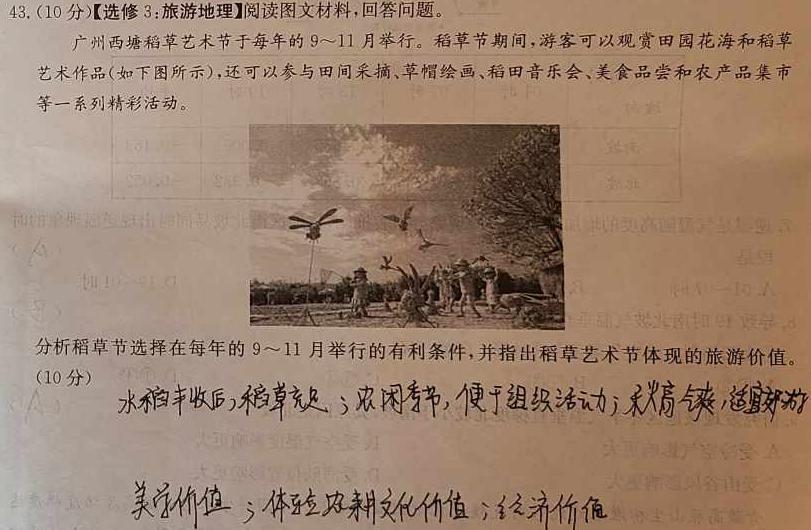 43.(10分)【选修3:旅游地理】阅读图文材料,回答问题。
广州西塘稻草艺术节于每年的9~11月举行。稻草节期间,游客可以观赏田园花海和稻草
艺术作品(如下图所示),还可以参与田间采摘、草帽绘画、稻田音乐会、美食品尝和农产品集市
等一系列精彩活动。
分析稻草节选择在每年的9~11月举行的有利条件,并指出稻草艺术节体现的旅游价值。
(10分)
水稻丰收后,稻草充足;农闲季节,便于组织活动;秋高气爽,适宜郊游
美学价值;体验农耕文化价值;经济价值